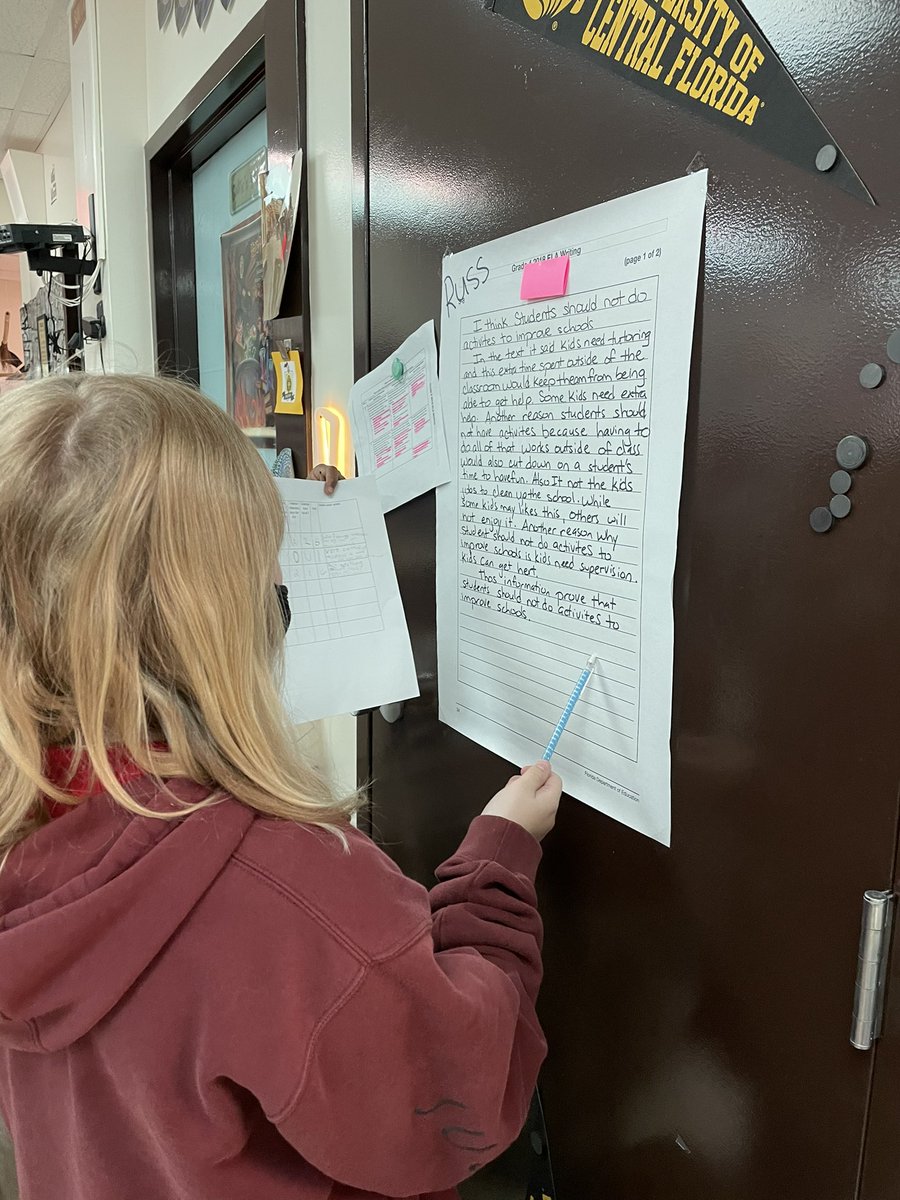 UNIVERSITY OF
CENTRAL FLORIDA
RUSS
Grade 4 2018 ELA Writing
(page 1 of 2)
I think Students should not do
activites to improve schools
In the text it said kids need tutoring
and this extra time spent outside of the
classroom would keep theam from being
able to get help. Some kids need extra
help. Another reason students should
not have activites because having to
do all of that works outside of class
would also cut down on a student's
time to havefun. Also It not the kids
jobs to clean up the school. While
some kids may likes this, others will
not enjoy it. Another reason why
student should not do activites to
improve schools is kids need supervision.
kids can get hert.
Thos information prove that
students should not do activites to
improve schools.
Florida Department of Education